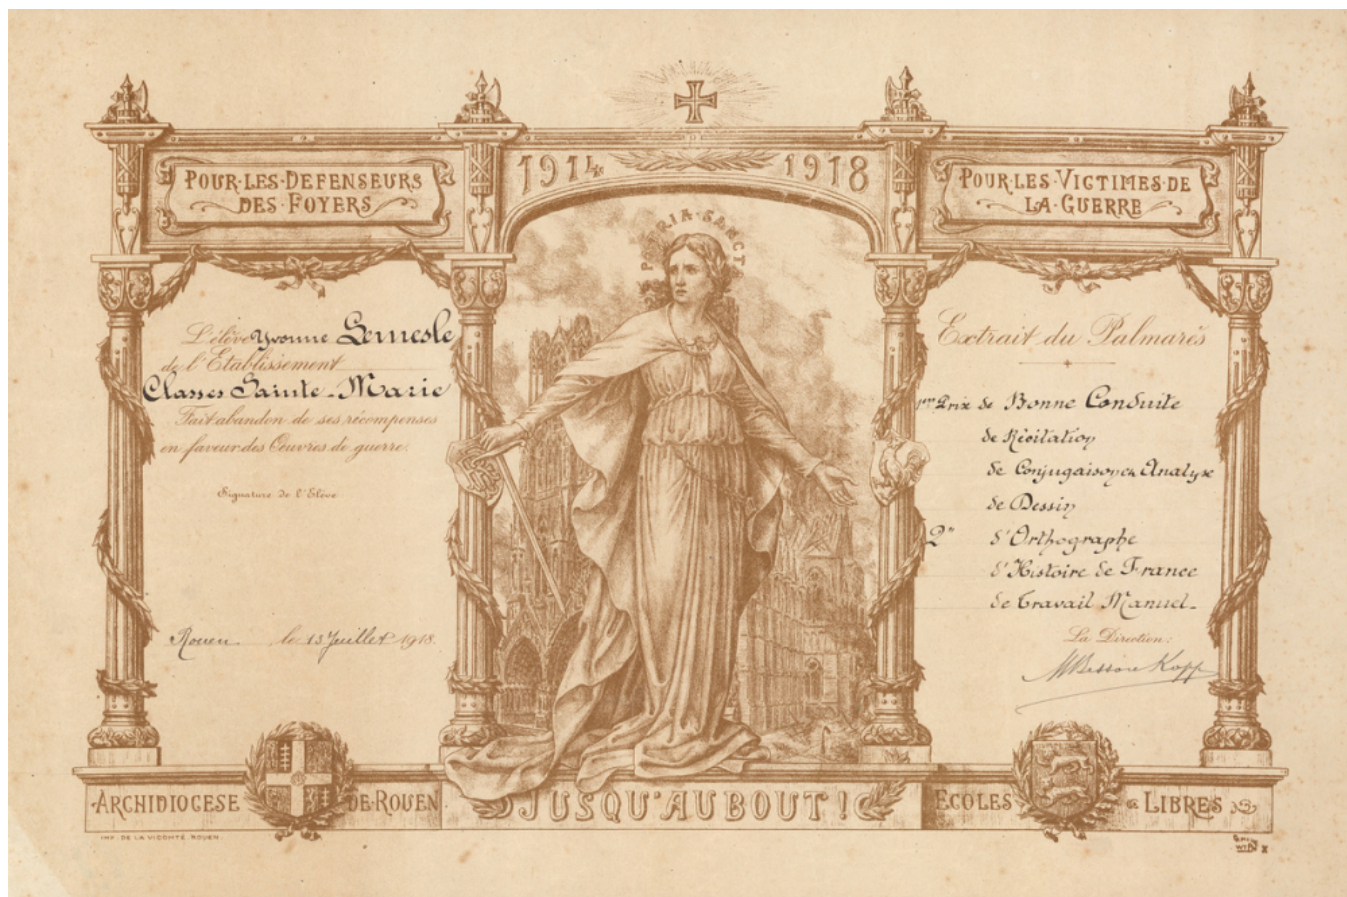 POUR·LES·DEFENSEURS
DES·FOYERS
1914 1918
POUR·LES·VICTIMES·DE
LA·GUERRE
PATRIA·SANCT
L'élève Yvonne Lemesle
de l'Etablissement
Classes Sainte-Marie
Fait abandon de ses récompenses
en faveur des Œuvres de guerre.
Signature de l'Elève
Rouen. le 13 Juillet 1918.
Extrait du Palmarès
1er Prix de Bonne Conduite
de Récitation
de Conjugaison et Analyse
de Dessin
2e d'Orthographe
d'Histoire de France
de Travail Manuel.
La Direction:
ARCHIDIOCESE DE·ROUEN
JUSQU'AU BOUT!
ECOLES LIBRES
IMP. DE LA VICOMTÉ ROUEN.